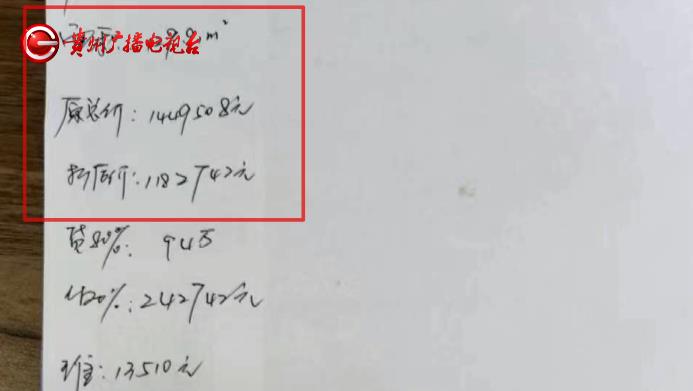 贵州广播电视台
m²
原总价：1449508元
折后价：1182742元
贷80%：94万
付20%：242742元
13510元